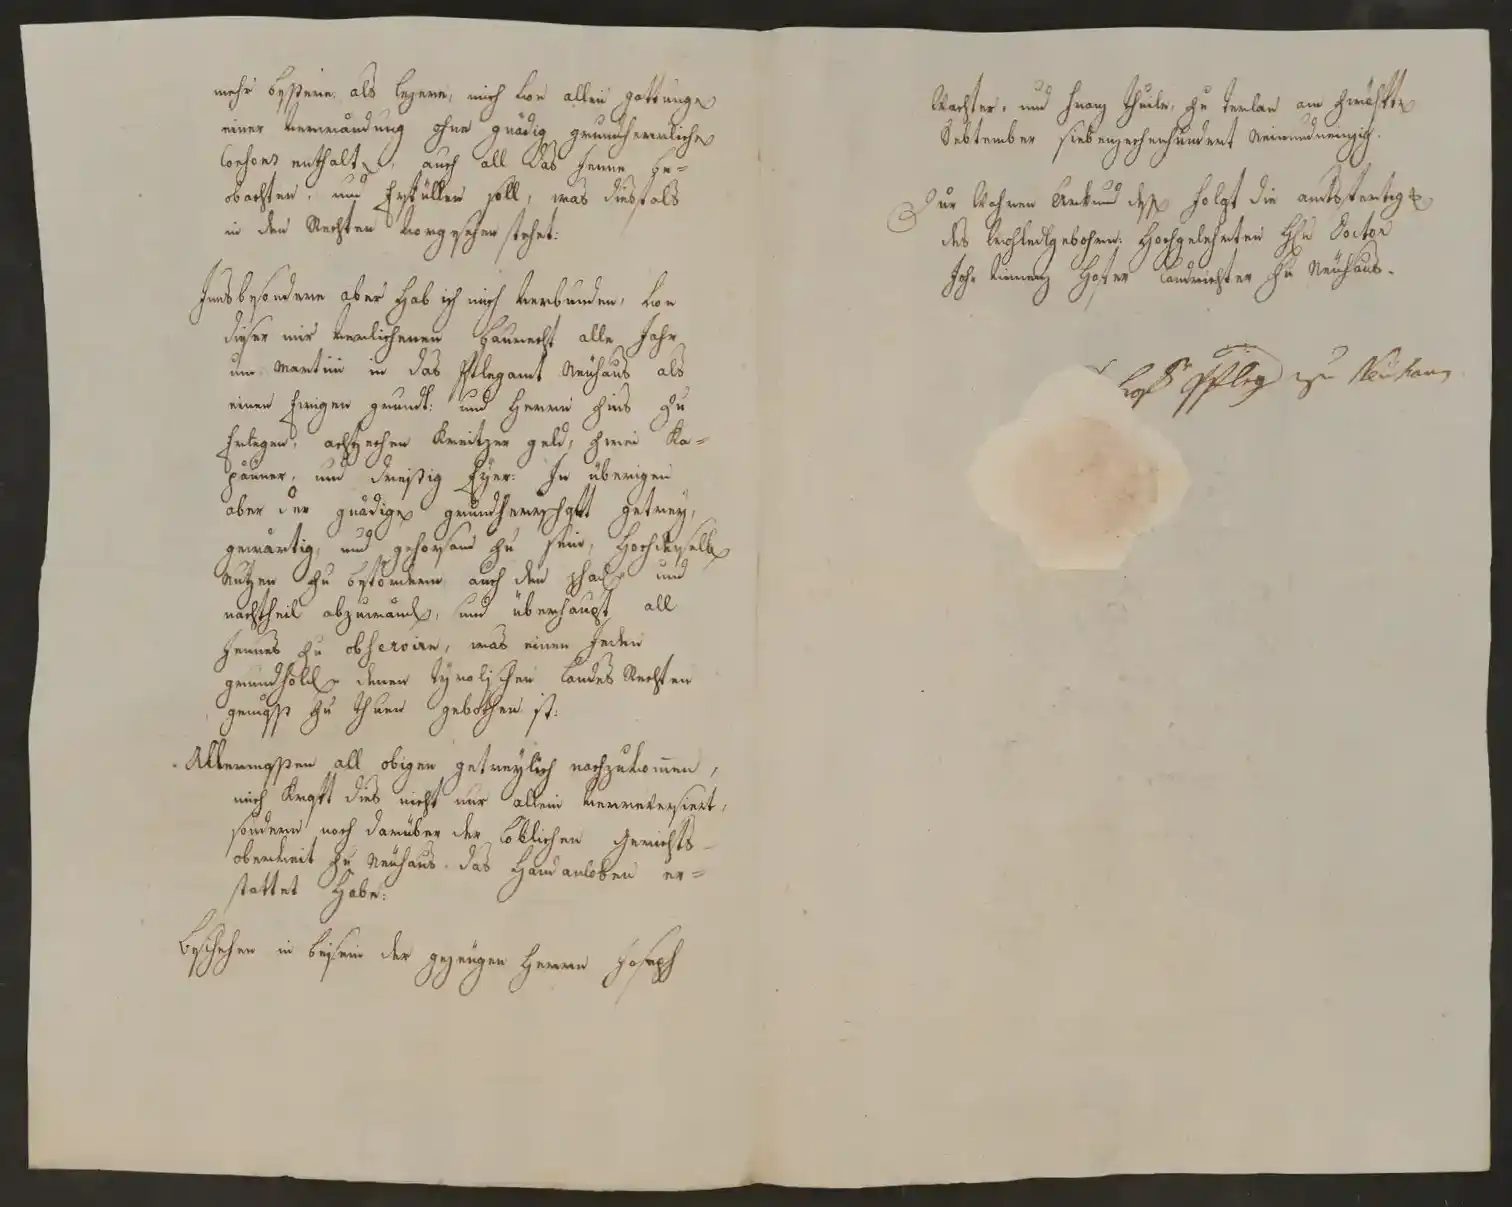 mehr bessere, als lezere, mich von allen gattunge
einer veränderung ohne gnädig grundherrliche
Consens enthalte, auch all das Jenne be=
obachten, und Erfüllen soll, was diesfals
in den Rechten vorgesehen stehet:
Innsbesondere aber hab ich mich verbunden, von
diser mir verlichenen Baurecht alle Jahr
um Martini in das Pflegamt Neühaus als
einen Ewigen grundt: und Herrn Zins zu
Erlegen, achtzechen Kreitzer geld, zwei Ka=
päuner, und dreißig Eyer: In überigen
aber der gnädige grundherrschaft getrey,
gewärtig, und gehorsam zu sein, Hochderselbe
Nutzen zu befördern, auch den schade und
nachtheil abzuwände, und überhaupt all
Jennes zu obserwirn, was einen Jeden
grundhold denen Tyrolischen Landes Rechten
gemäss zu thuen gebothen ist:
Allermassen all obigen getreylich nachzukom̃en,
mich Kraft dies nicht nur allein verreversiert,
sondern noch darüber der Löblichen Gerichts=
oberkeit zu Neühaus das Handanloben er=
stattet habe:
Beschehen in beisein der gezeugen Herrn Joseph
Wachter, und Franz Theile, zu Terlan am zwölfte
September siebenzechenhundert Neinundneinzig.
Zur Wahren Urkund dess folgt die amtsfertige
des Wohledlgebohrn: Hochgelehrten Hhn Doctor
Joh: Hofer Landrichter zu Neühaus.
Pfleg zu Neuhaus